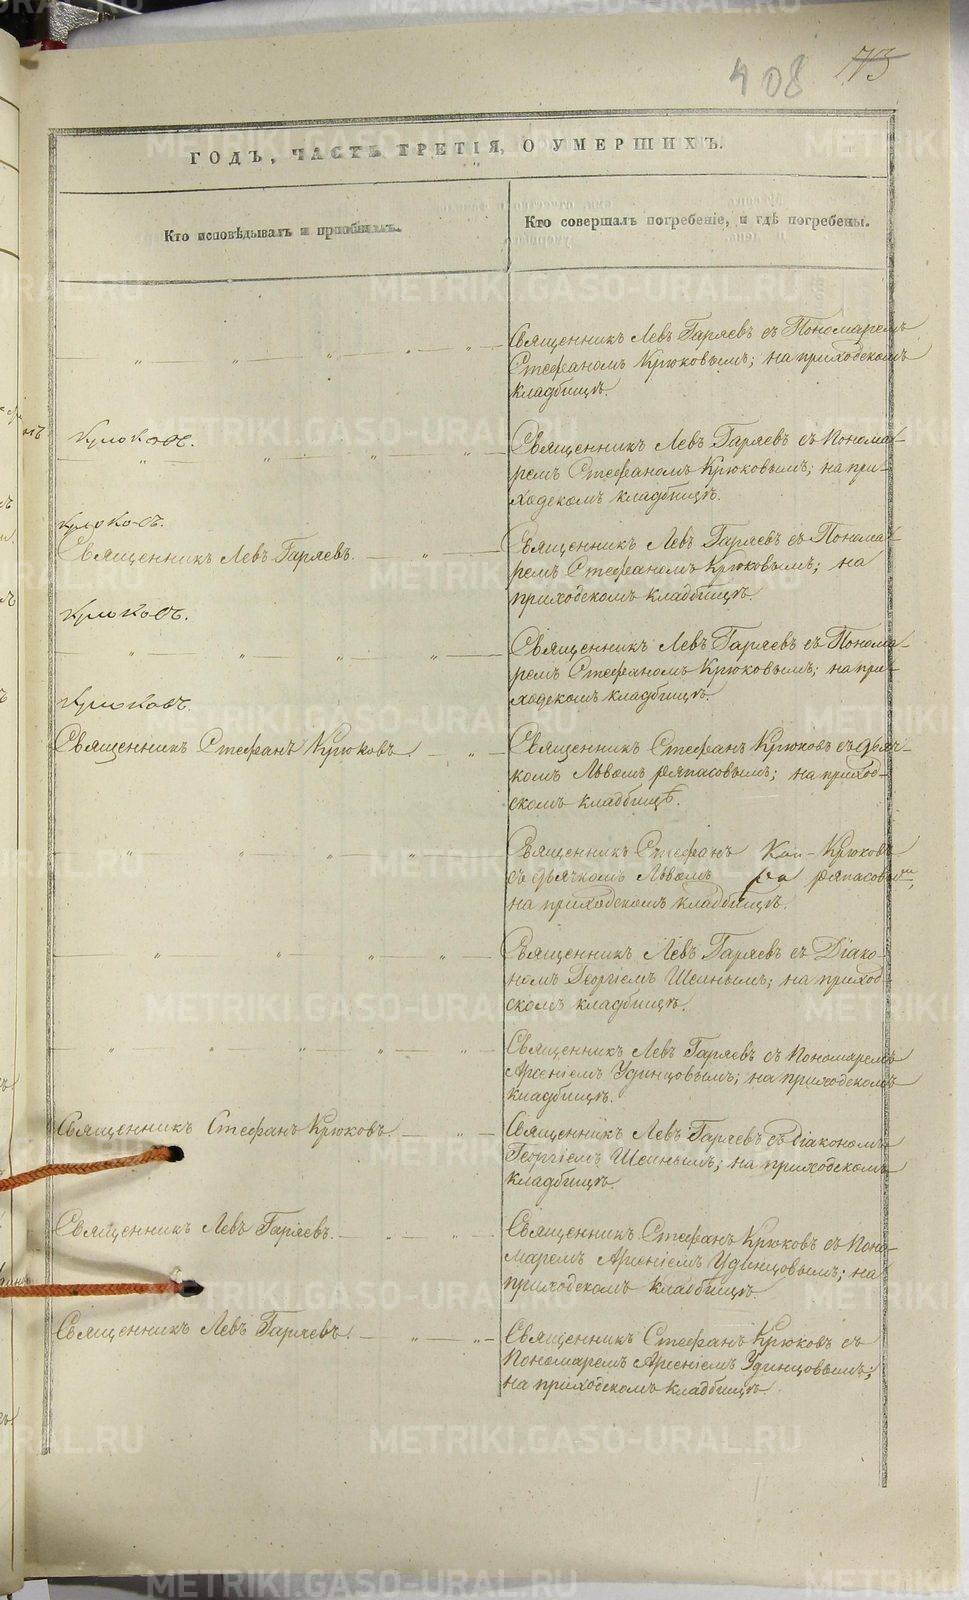 408 173
ГОДЪ, ЧАСТЬ ТРЕТІЯ, О УМЕРШИХЪ.
Кто исповѣдывалъ и пріобщалъ.
Кто совершалъ погребеніе, и гдѣ погребены.
Священникъ Левъ Гаряевъ съ Пономаремъ
Стефаномъ Крюковымъ; на приходскомъ
кладбищѣ.
Крюковъ.
Священникъ Левъ Гаряевъ съ Понома-
ремъ Стефаномъ Крюковымъ; на при-
ходскомъ кладбищѣ.
Крюковъ.
Священникъ Левъ Гаряевъ.
Священникъ Левъ Гаряевъ съ Понома-
ремъ Стефаномъ Крюковымъ; на
приходскомъ кладбищѣ.
Крюковъ.
Священникъ Левъ Гаряевъ съ Понома-
ремъ Стефаномъ Крюковымъ; на при-
ходскомъ кладбищѣ.
Крюковъ.
Священникъ Стефанъ Крюковъ
Священникъ Стефанъ Крюковъ съ дьяч-
комъ Львомъ Ряпасовымъ; на приход-
скомъ кладбищѣ.
Священникъ Стефанъ Крюковъ
съ дьячкомъ Львомъ Ряпасовымъ;
на приходскомъ кладбищѣ.
Священникъ Левъ Гаряевъ съ Діако-
номъ Георгіемъ Шеинымъ; на приход-
скомъ кладбищѣ.
Священникъ Левъ Гаряевъ съ Пономаремъ
Арсеніемъ Удинцовымъ; на приходскомъ
кладбищѣ.
Священникъ Стефанъ Крюковъ.
Священникъ Левъ Гаряевъ съ Діакономъ
Георгіемъ Шеинымъ; на приходскомъ
кладбищѣ.
Священникъ Левъ Гаряевъ.
Священникъ Стефанъ Крюковъ съ Поно-
маремъ Арсеніемъ Удинцовымъ; на
приходскомъ кладбищѣ.
Священникъ Левъ Гаряевъ.
Священникъ Стефанъ Крюковъ съ
Пономаремъ Арсеніемъ Удинцовымъ;
на приходскомъ кладбищѣ.
METRIKI.GASO-URAL.RU